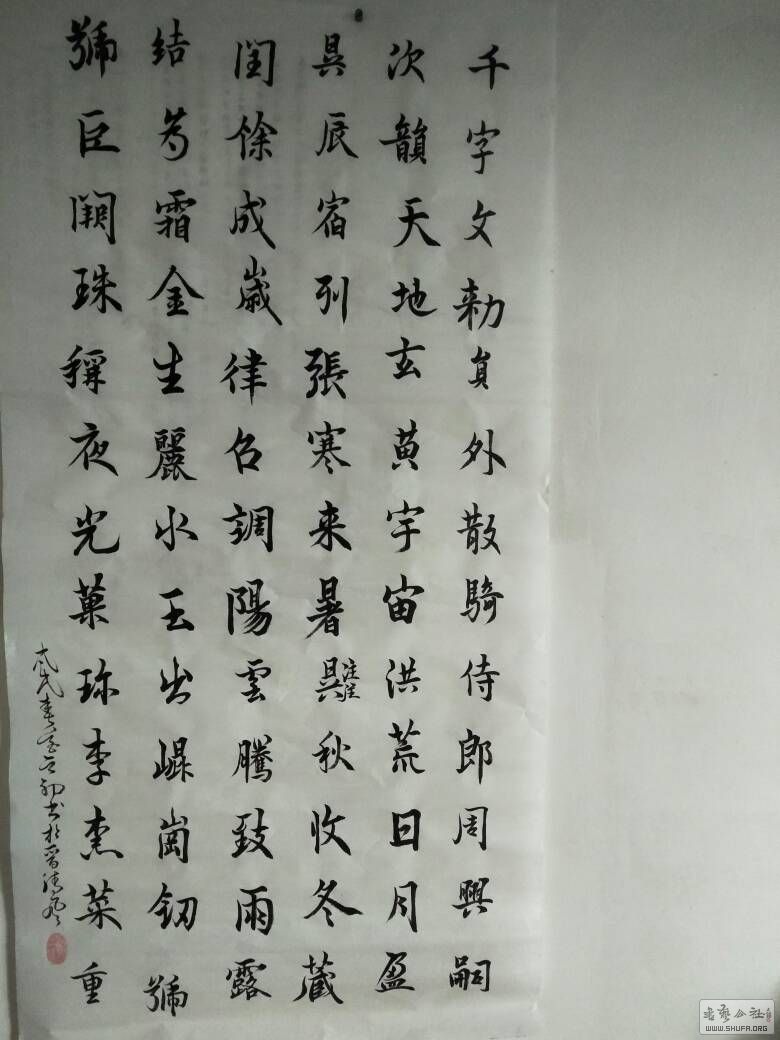 千字文勅員外散騎侍郎周興嗣
次韻天地玄黃宇宙洪荒日月盈
昃辰宿列張寒来暑昃注往秋收冬藏
閏餘成歲律召調陽雲騰致雨露
結為霜金生麗水玉出崐崗釰號
號巨闕珠稱夜光菓珍李柰菜重
书艺公社
WWW.SHUFA.ORG